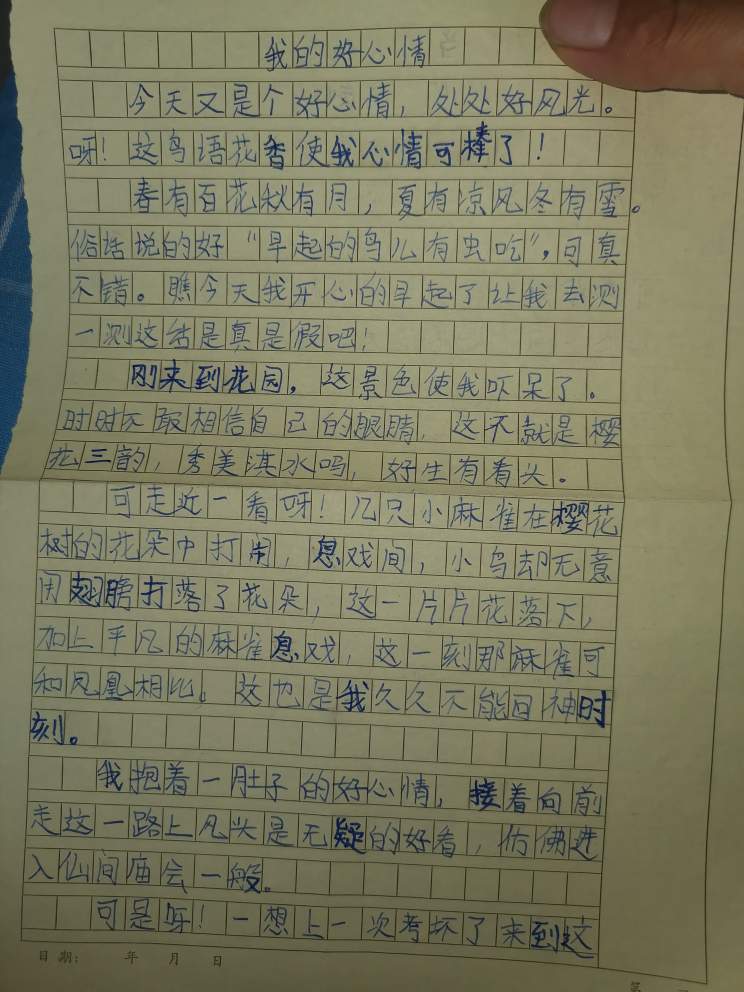 我的好心情
今天又是个好心情，处处好风光。
呀！这鸟语花香使我心情可棒了！
春有百花秋有月，夏有凉风冬有雪。
俗话说的好“早起的鸟儿有虫吃”，可真
不错。瞧今天我开心的早起了让我去测
一测这话是真是假吧！
刚来到花园，这景色使我吓呆了。
时时不敢相信自己的眼睛，这不就是樱
花三韵，秀美淇水吗，好生有看头。
可走近一看呀！几只小麻雀在樱花
树的花朵中打闹，息戏间，小鸟却无意
用翅膀打落了花朵，这一片片花落下，
加上平凡的麻雀息戏，这一刻那麻雀可
和凤凰相比。这也是我久久不能回神时
刻。
我抱着一肚子的好心情，接着向前
走这一路上风头是无疑的好看，仿佛进
入仙间庙会一般。
可是呀！一想上一次考坏了来到这
日期： 年 月 日
第